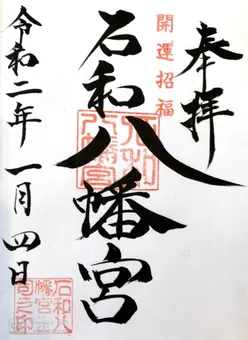 奉拝
開運招福
石和八幡宮
石和八幡宮
令和二年一月四日
石和八幡宮宮司之印